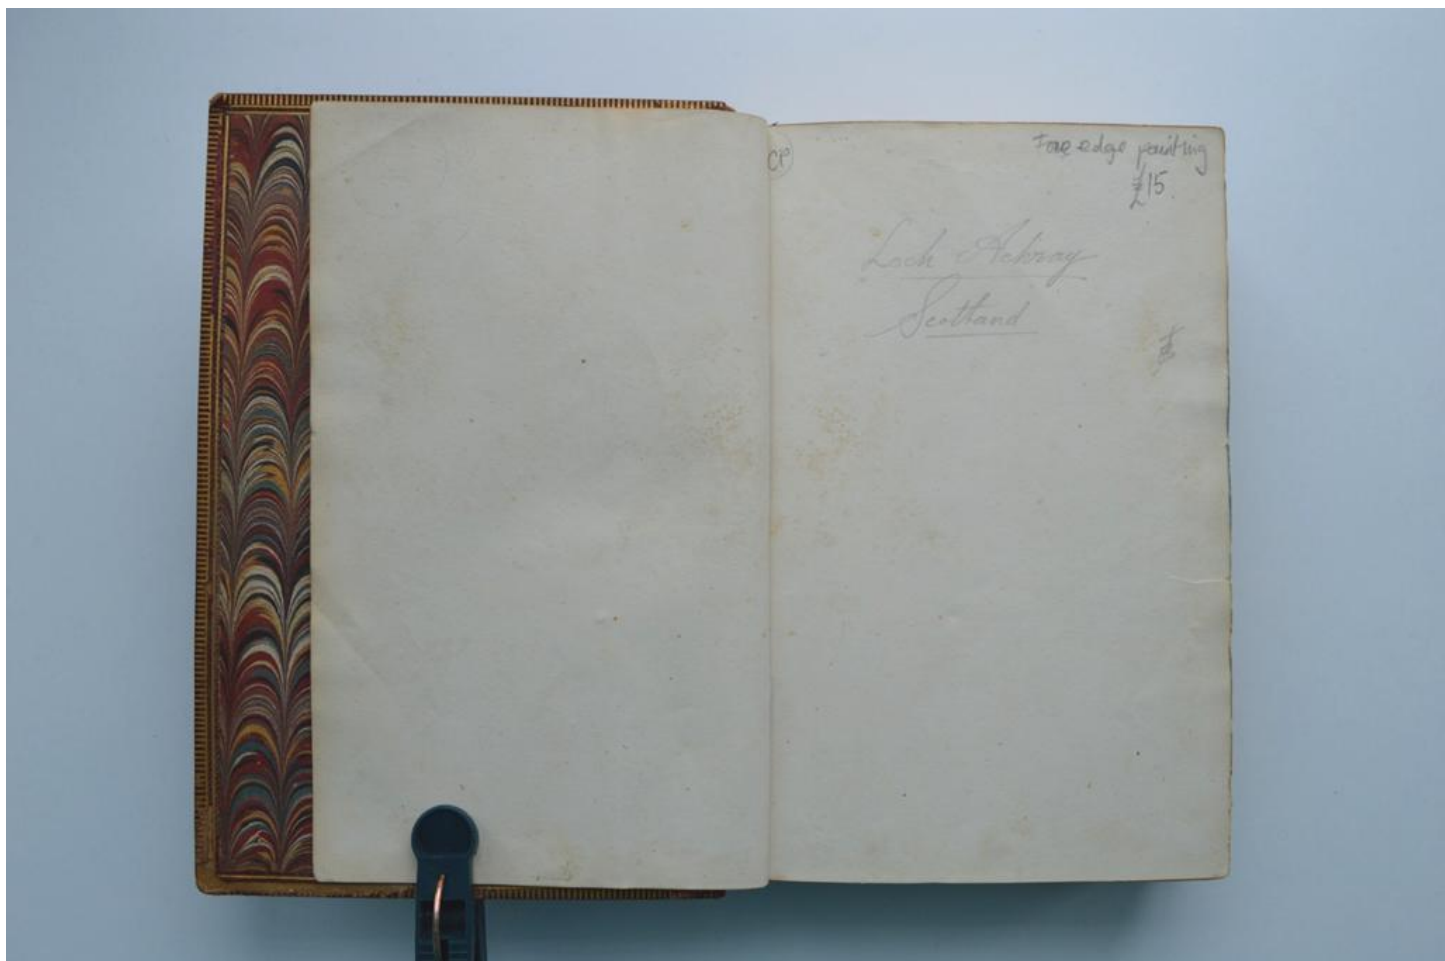 CP
Fore edge painting
£15
Loch Achray
Scotland